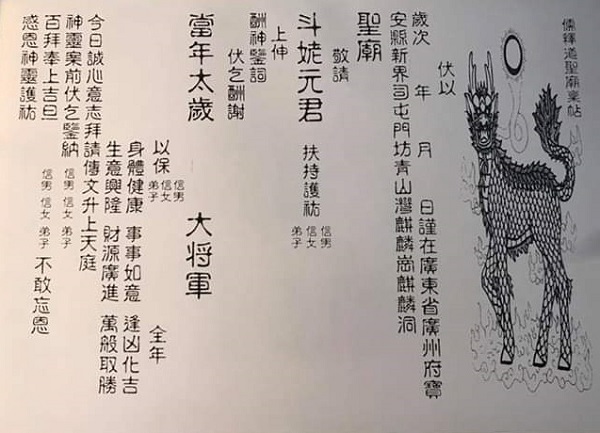 儒釋道聖廟稟帖
伏以
歲次 年 月 日謹在廣東省廣州府寶
安縣新界司屯門坊青山灣麒麟崗麒麟洞
聖廟
敬請
斗姥元君 扶持護祐 信男 信女 弟子
上伸
酬神鑒詞
伏乞酬謝
當年太歲 大將軍
以保 信男 信女 弟子 全年
身體健康 事事如意 逢凶化吉
生意興隆 財源廣進 萬般取勝
今日誠心意志拜請傳文升上天庭
神靈案前伏乞鑒納 信男 信女 弟子
百拜奉上吉旦 信男 信女 弟子 不敢忘恩
感恩神靈護祐